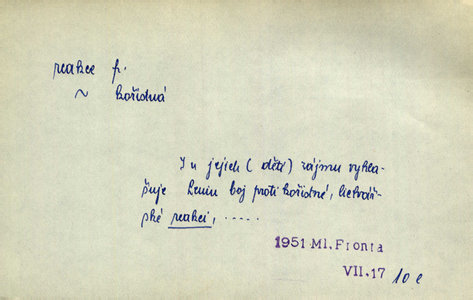 reakce f.
~ kořistná
I v jejich (dětí) zájmu vyhla-
šuje Lenin boj proti kořistné, lichvář-
ské reakci, .....
1951 Ml. Fronta
VII.17 10 e